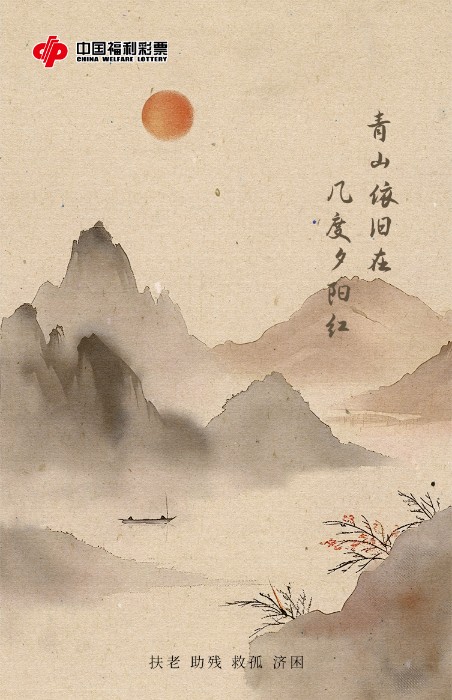 中国福利彩票
CHINA WELFARE LOTTERY
青山依旧在
几度夕阳红
扶老 助残 救孤 济困